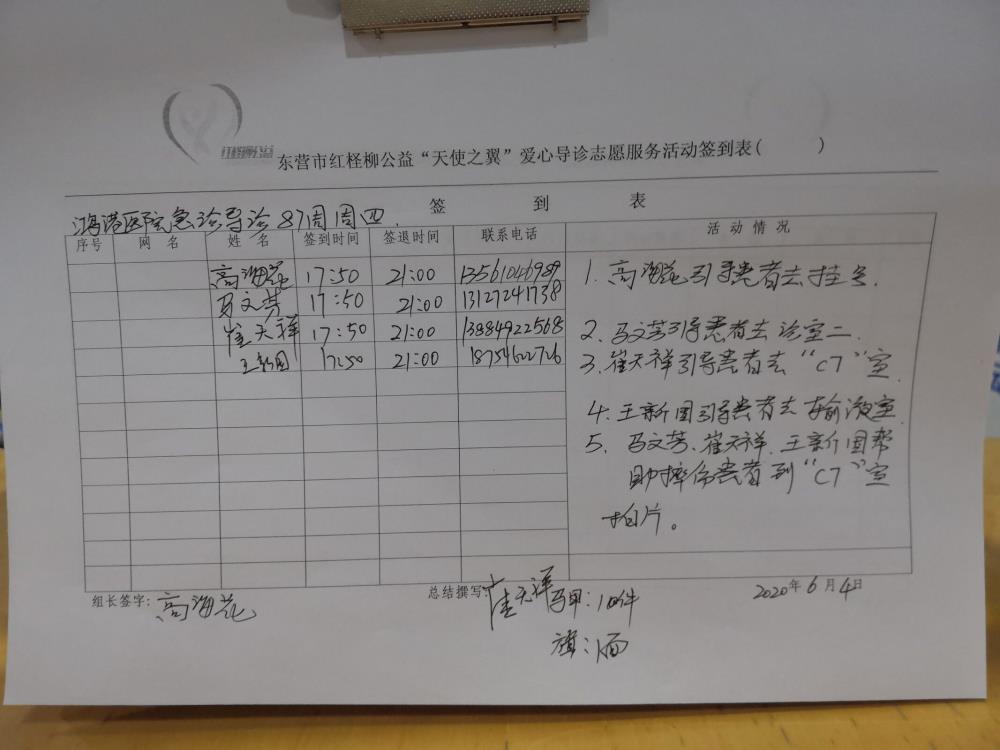 红柽柳公益
东营市红柽柳公益“天使之翼”爱心导诊志愿服务活动签到表( )
签 到 表
鸿港医院急诊导诊87周周四.
序号 网 名 姓 名 签到时间 签退时间 联系电话 活动情况
高海花 17:50 21:00 13561046989
马文芳 17:50 21:00 13127241738
崔天祥 17:50 21:00 13884922568
王新国 17:50 21:00 18754622726
1. 高海花引导患者去挂号.
2. 马文芳引导患者去诊室二.
3. 崔天祥引导患者去“CT”室.
4. 王新国引导患者去输液室
5. 马文芳、崔天祥、王新国帮
助摔伤患者到“CT”室
拍片。
组长签字: 高海花 总结撰写: 崔天祥 2020年6月4日
马甲:10件
旗:1面